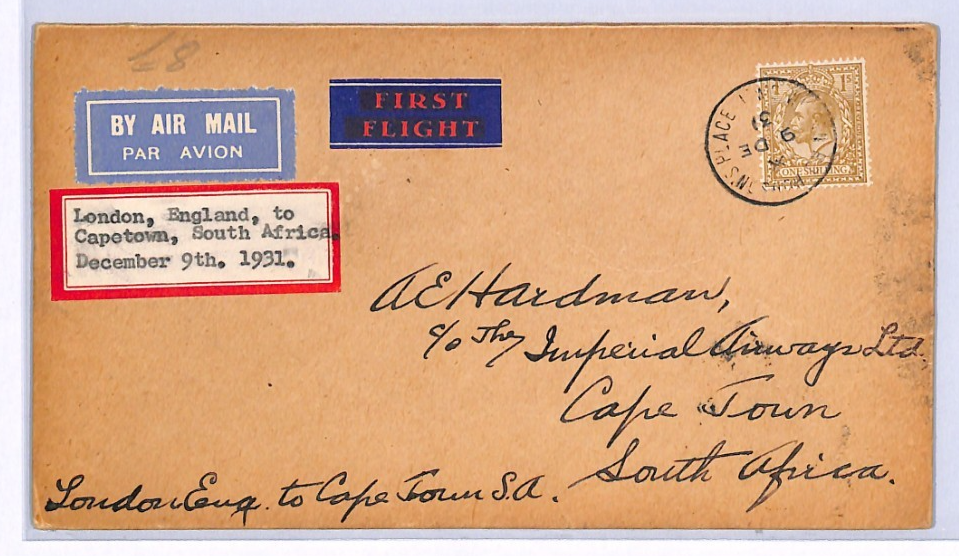 £8
BY AIR MAIL
PAR AVION
FIRST
FLIGHT
1s
ONE SHILLING
9 DE
31
London, England, to
Capetown, South Africa.
December 9th. 1931.
A E Hardman,
c/o The Imperial Airways Ltd.
Cape Town
South Africa.
London Eng. to Cape Town S.A.